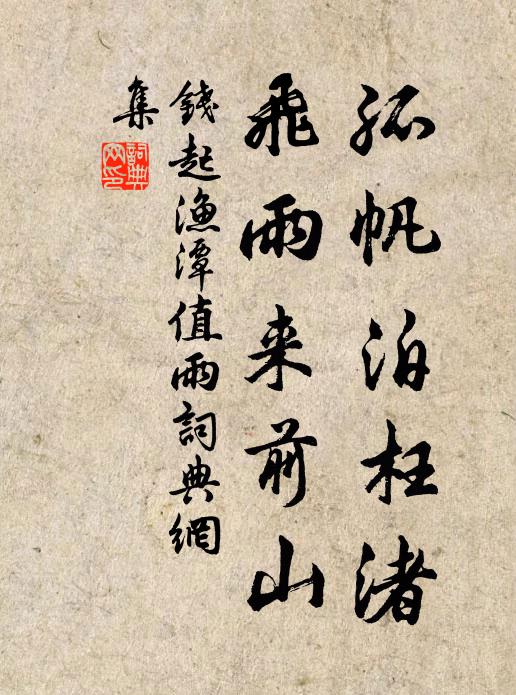 孤帆泊枉渚
飛雨来前山
錢起漁潭值雨詞典網
集
詞典
网印